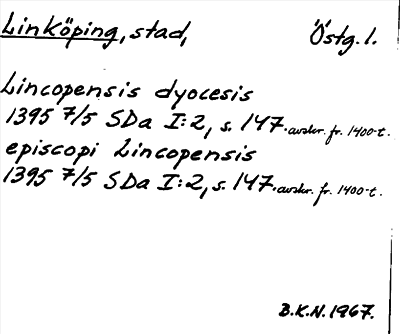 Linköping, stad, Östg. l.
Lincopensis dyocesis
1395 7/5 SDa I:2, s. 147. avskr. fr. 1400-t.
episcopi Lincopensis
1395 7/5 SDa I:2, s. 147. avskr. fr. 1400-t.
B.K.N. 1967.